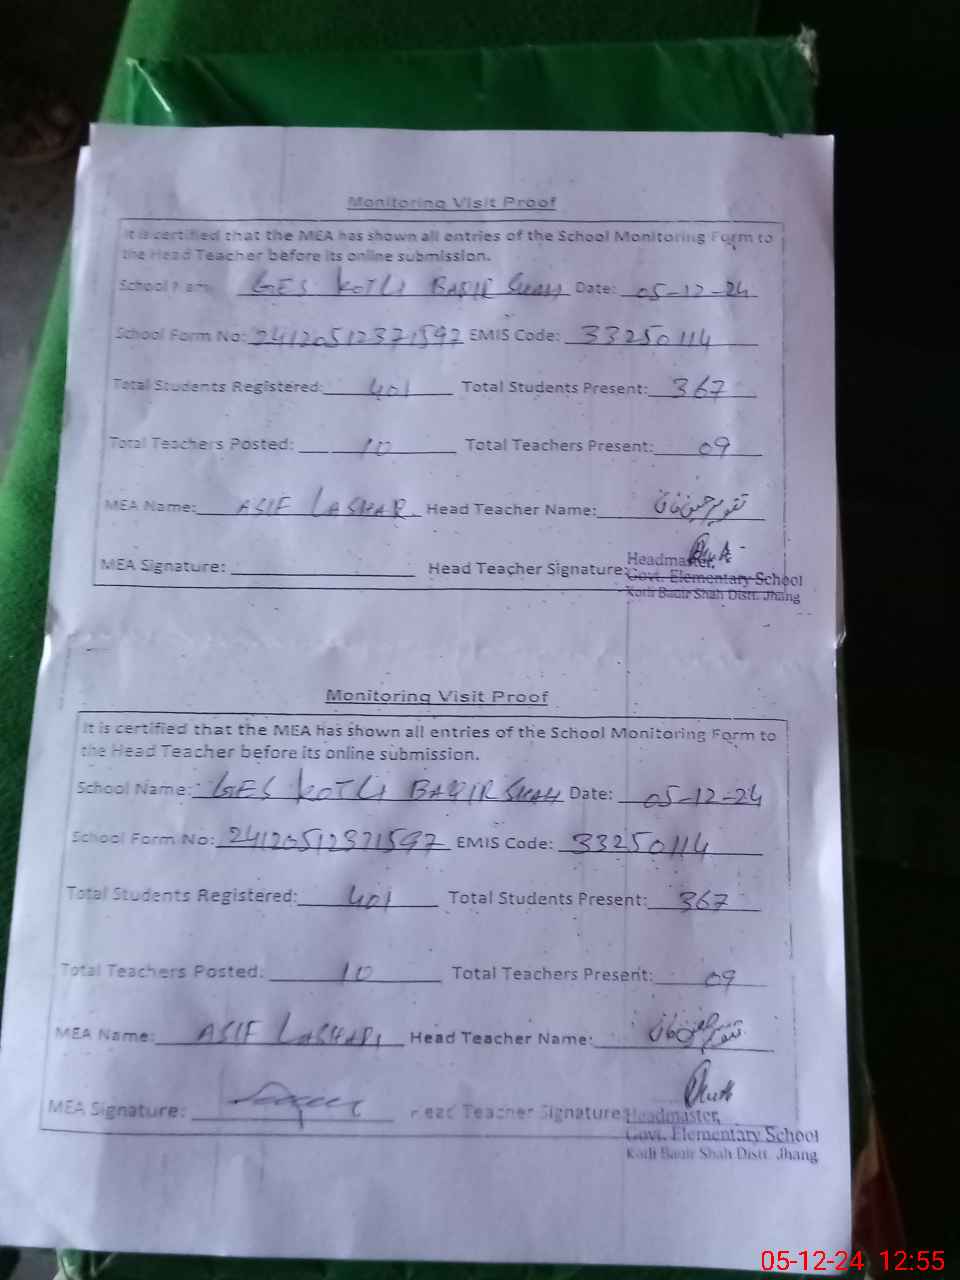 Monitoring Visit Proof
It is certified that the MEA has shown all entries of the School Monitoring Form to
the Head Teacher before its online submission.
School Name: GES KOTLI BAQIR SHAH Date: 05-12-24
School Form No: 24120512371597 EMIS Code: 33250114
Total Students Registered: 401 Total Students Present: 367
Total Teachers Posted: 10 Total Teachers Present: 09
MEA Name: ASIF LASHARI Head Teacher Name:
MEA Signature: Head Teacher Signature:
Headmaster,
Govt. Elementary School
Kotli Baqir Shah Distt. Jhang
Monitoring Visit Proof
It is certified that the MEA has shown all entries of the School Monitoring Form to
the Head Teacher before its online submission.
School Name: GES KOTLI BAQIR SHAH Date: 05-12-24
School Form No: 24120512371597 EMIS Code: 33250114
Total Students Registered: 401 Total Students Present: 367
Total Teachers Posted: 10 Total Teachers Present: 09
MEA Name: ASIF LASHARI Head Teacher Name:
MEA Signature: Head Teacher Signature:
Headmaster,
Govt. Elementary School
Kotli Baqir Shah Distt. Jhang
05-12-24 12:55